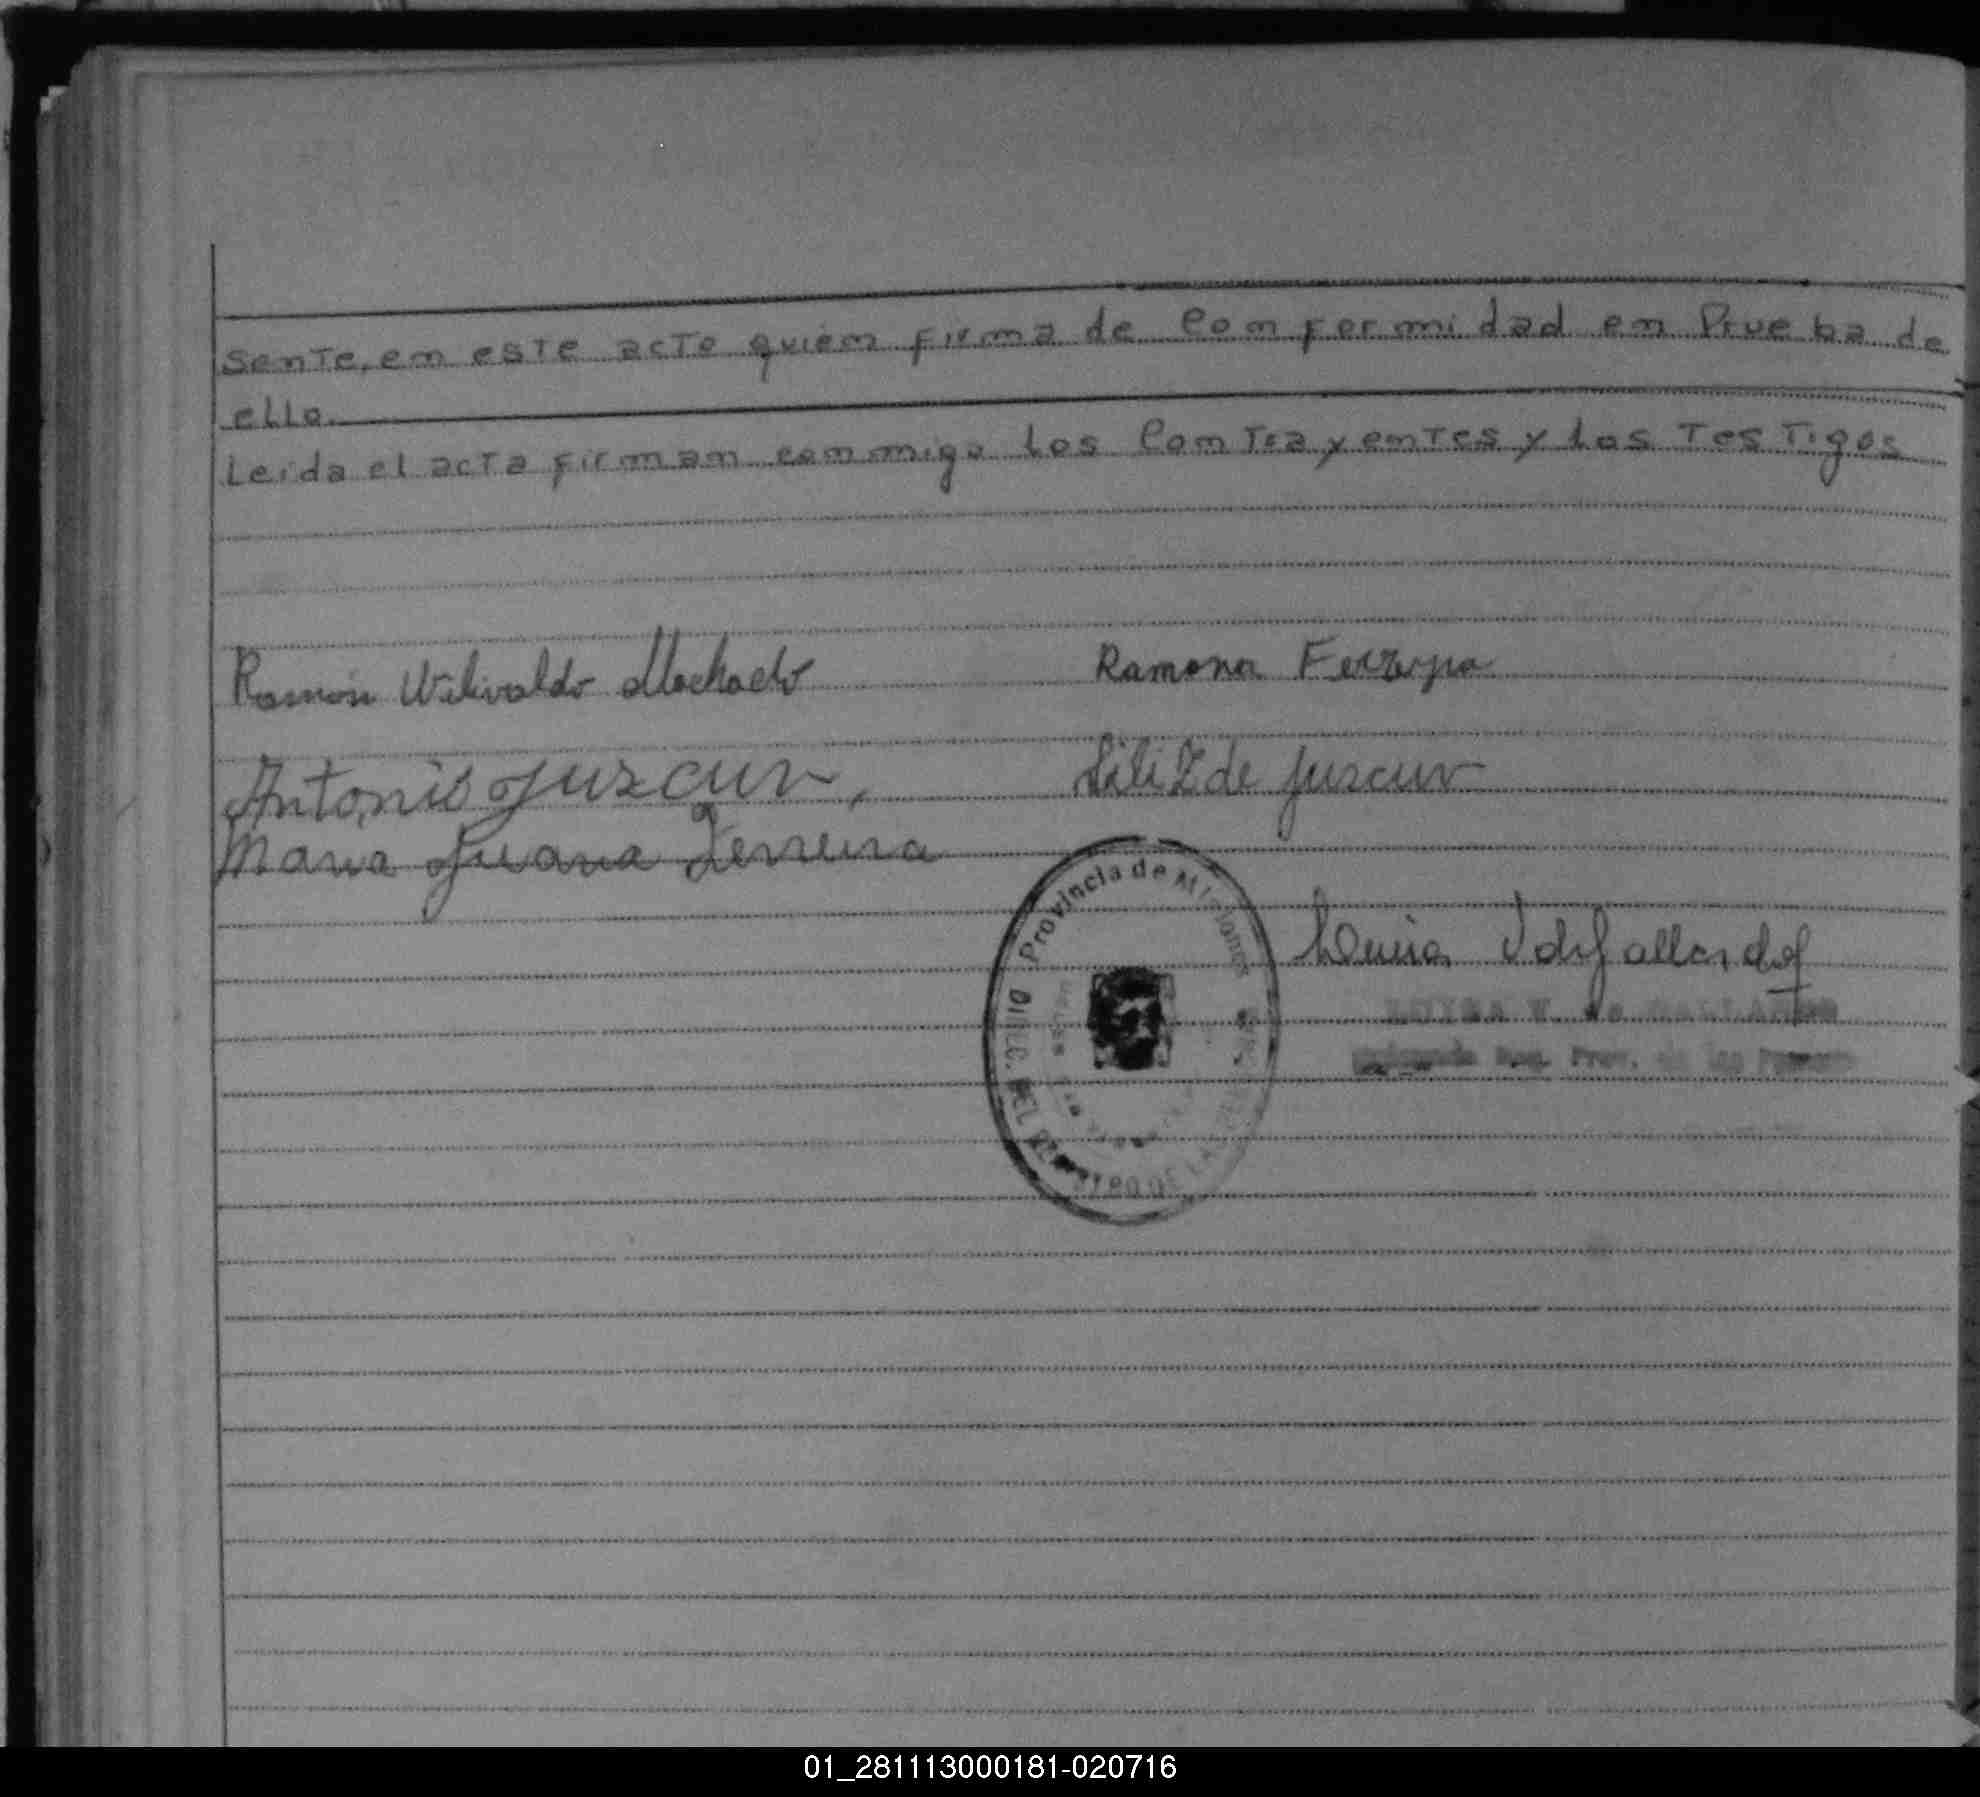 sente, en este acto quien firma de Conformidad en Prueba de
ello.
Leida el acta firman conmigo los Contrayentes y los Testigos
Ramón Wilivaldo Machado
Ramona Ferreyra
Antonio Juzcuv,
Lili Z de Juzcuv
Maria Juana Ferreira
Provincia de Misiones
DIREC. DEL REGISTRO DE LAS PERSONAS
Luisa V de Gallardo
LUISA V. de GALLARDO
Reg. Prov. de las Personas
01_281113000181-020716